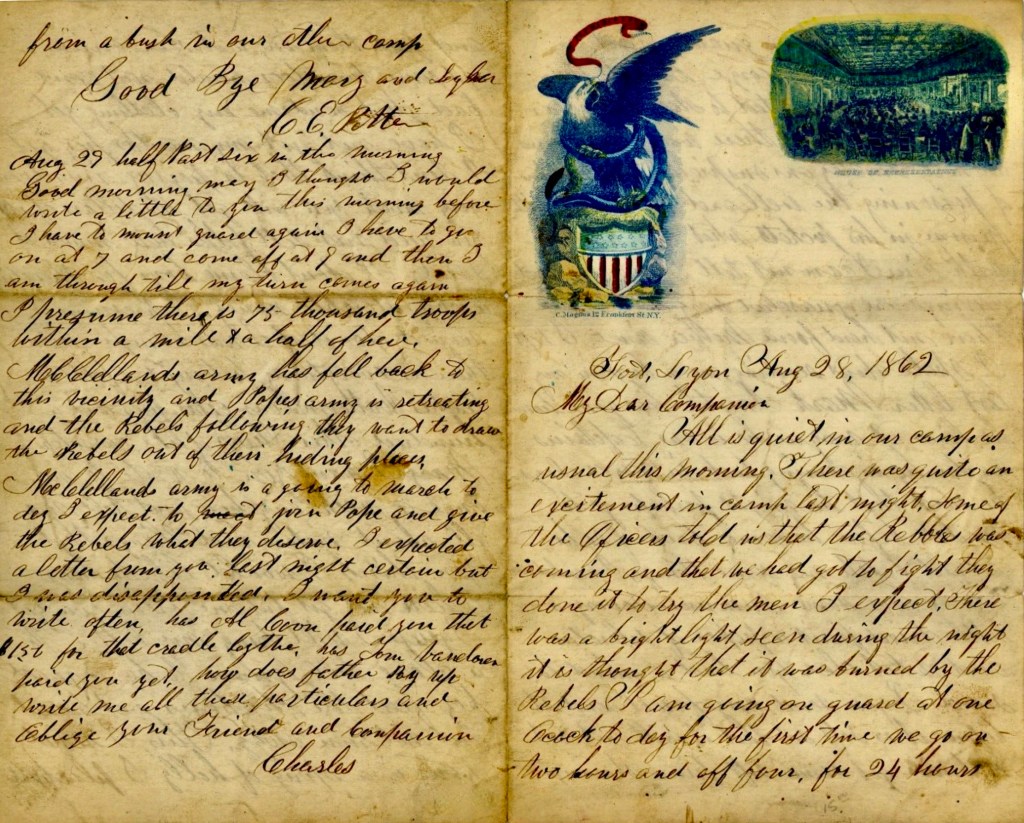 from a bush in our other camp
Good Bye Mary and
C. E. Potter
Aug 29 half Past six in the morning
Good morning may I thought I would
write a little to you this morning before
I have to mount guard again I have to go
on at 7 and come off at 9 and then I
am through till my turn comes again
I presume there is 75 thousand troops
within a mile & a half of here.
McClellands army has fell back to
this vicinity and Popes army is retreating
and the Rebels following they want to draw
the Rebels out of their hiding places,
McClellands army is a going to march to
day I expect. to join Pope and give
the Rebels what they deserve. I expected
a letter from you last night certain but
I was disappointed. I want you to
write often, has Al Coon paid you that
for that cradle has Tom
paid you yet. how does father
write me all these particulars and
Oblige your Friend and Companion
Charles
HOUSE OF REPRESENTATIVES
C. Magnus 12 Frankfort St. N.Y.
Fort, Lyon Aug 28, 1862
My Dear Companion
All is quiet in our camp as
usual this morning. There was quite an
excitement in camp last night, some of
the Oficers told us that the Rebbles was
coming and that we had got to fight they
done it to try the men I expect. There
was a bright light, seen during the night
it is thought that it was burned by the
Rebels I am going on guard at one
Ocock to day for the first time we go on
two hours and off four, for 24 hours